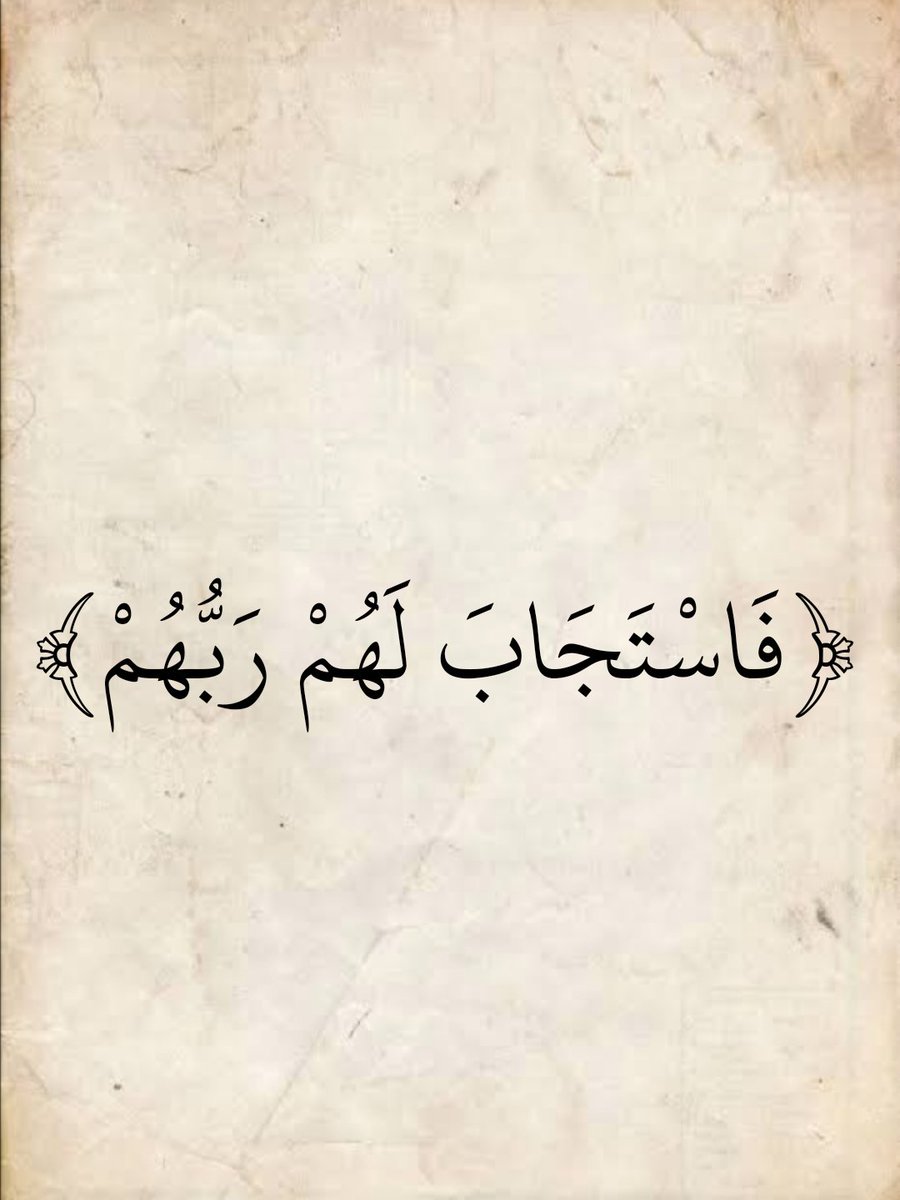 ﴿فَاسْتَجَابَ لَهُمْ رَبُّهُمْ﴾